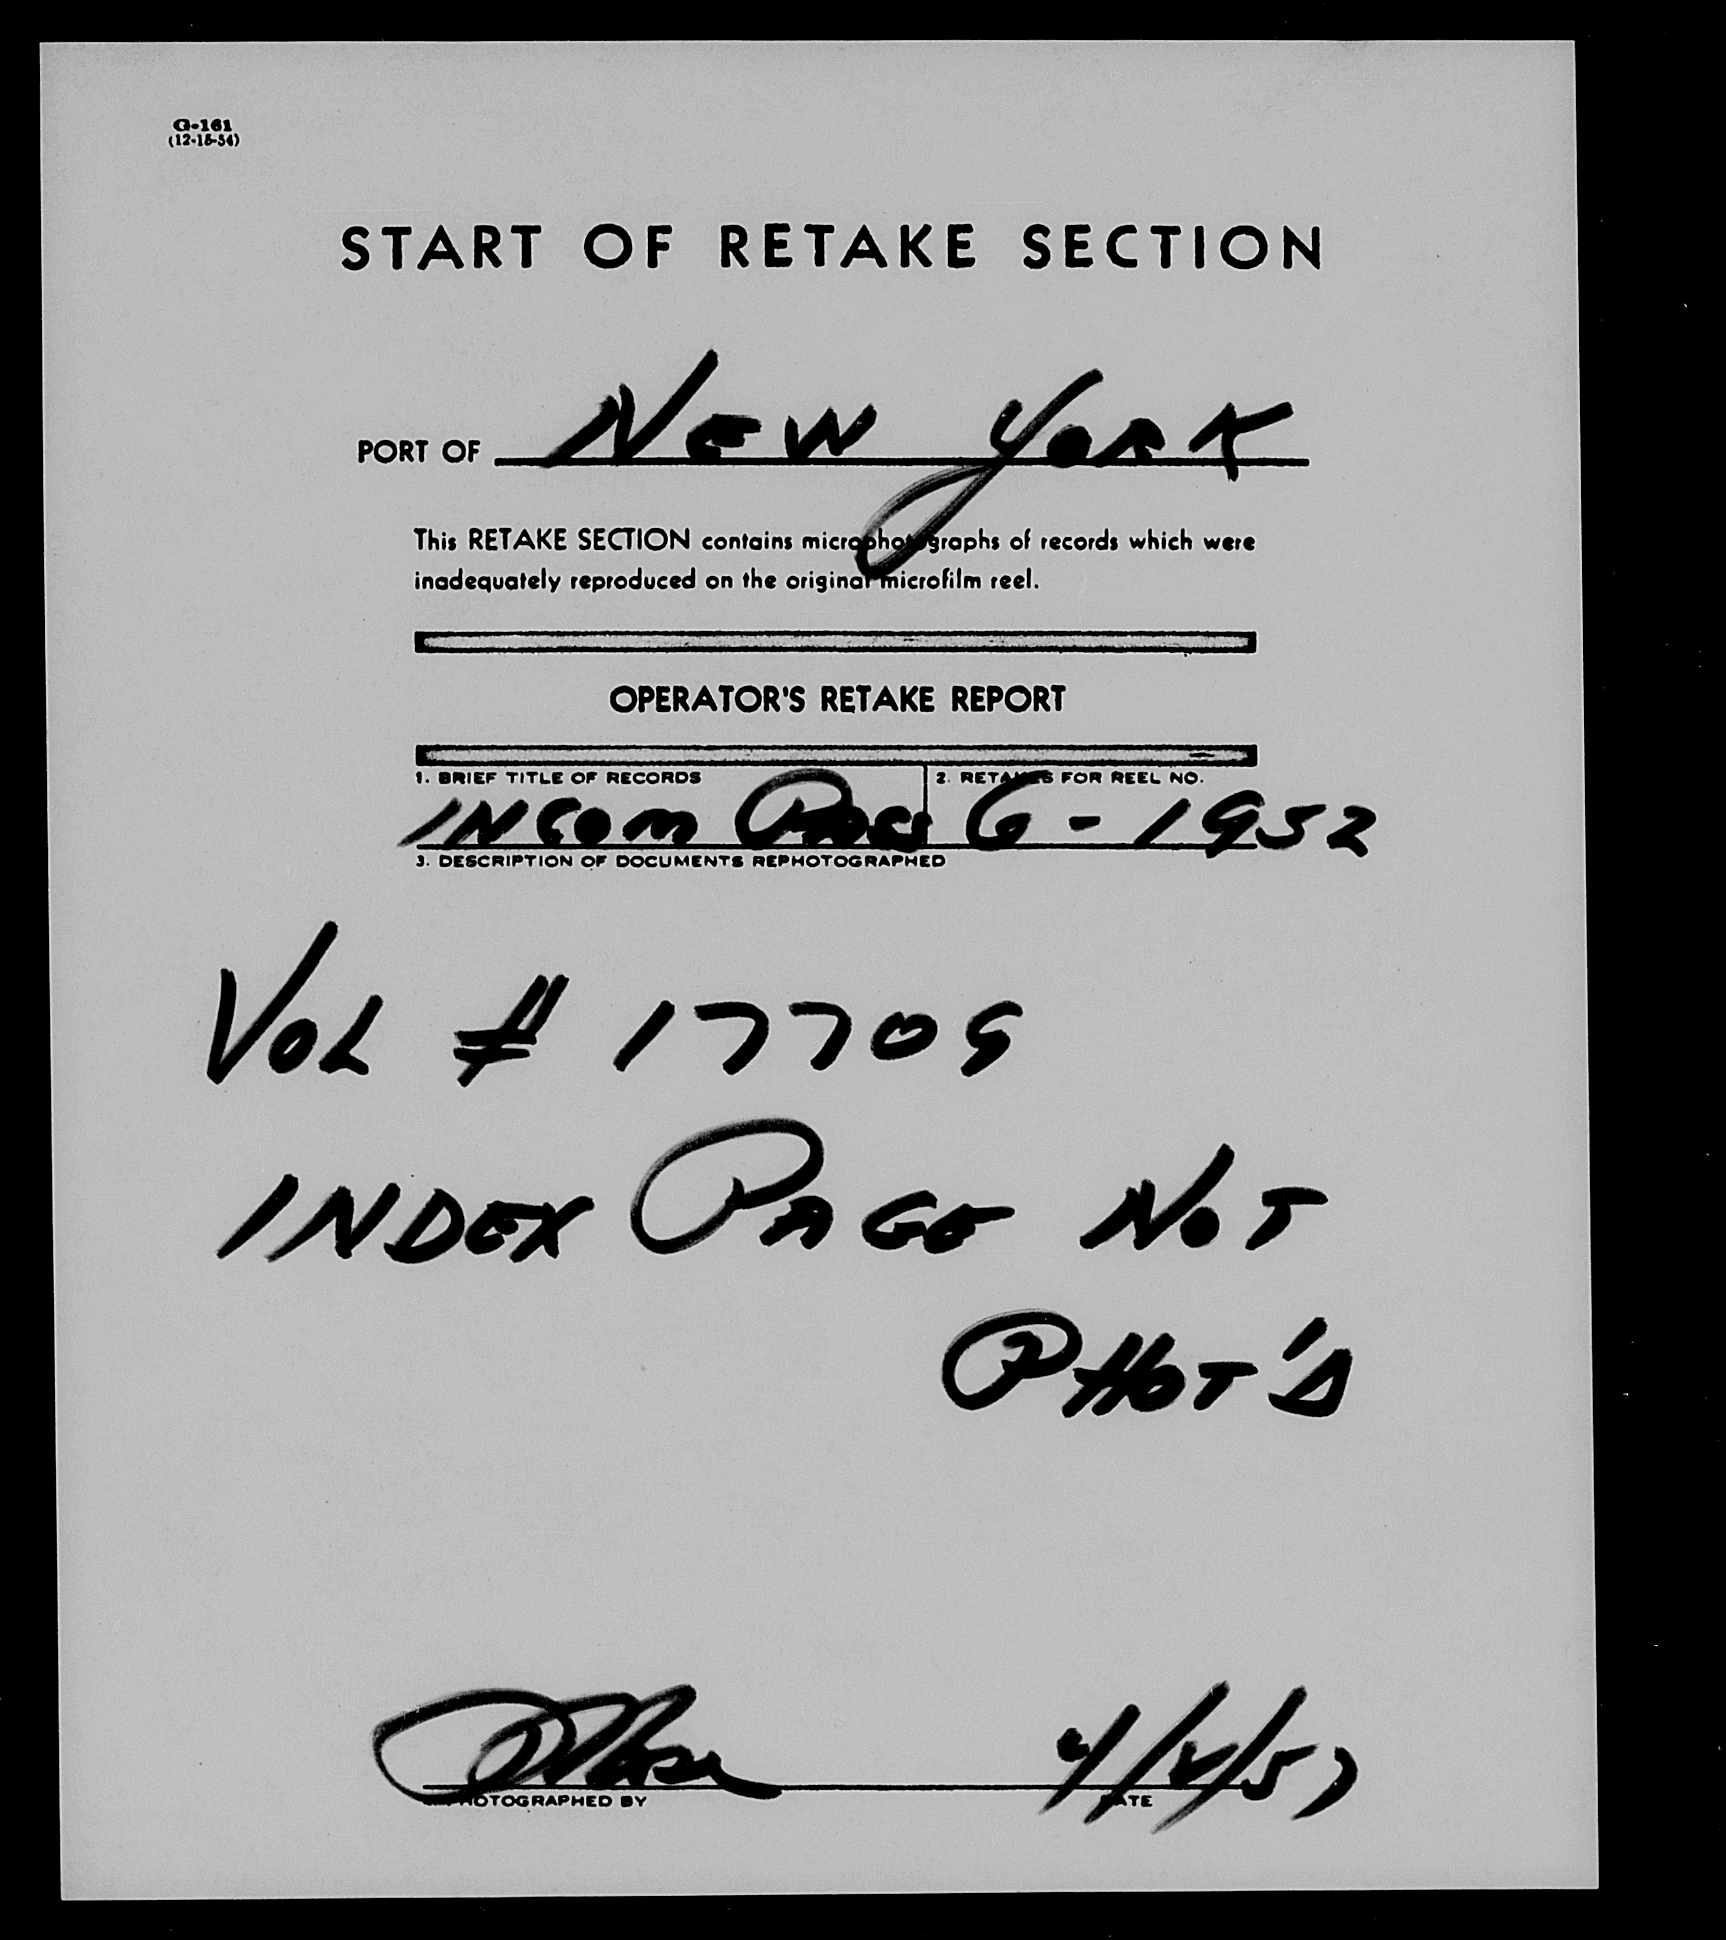 G-161
(12-15-54)
START OF RETAKE SECTION
PORT OF NEW YORK
This RETAKE SECTION contains microphotographs of records which were
inadequately reproduced on the original microfilm reel.
OPERATOR'S RETAKE REPORT
1. BRIEF TITLE OF RECORDS 2. RETAKES FOR REEL NO.
INCOM PASS G-1952
3. DESCRIPTION OF DOCUMENTS REPHOTOGRAPHED
VOL # 17709
INDEX PAGE NOT
PHOT'D
4/4/57
PHOTOGRAPHED BY DATE